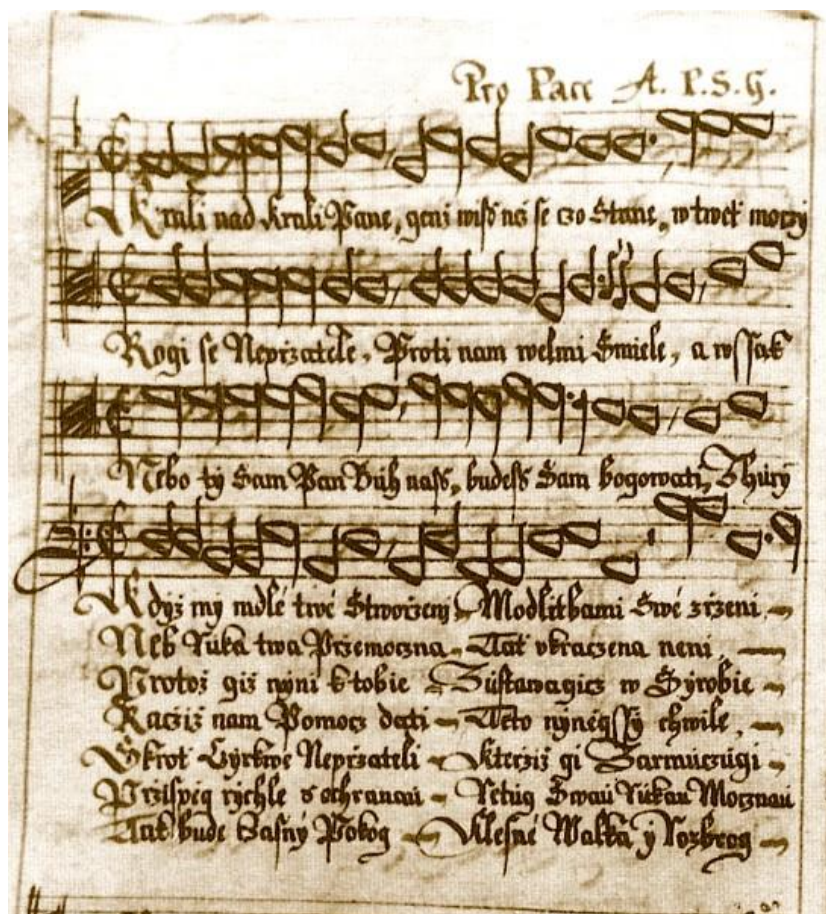 Pro Pace A. P. S. G.
Krali nad Krali Pane, genz wissd nas se czo Stane, w twet moczy
Rogi se Neprzatele, Proti nam welmi Smiele, a wssak
Nebo ty Sam Pan Buh nass, budess Sam bogowati,
Kdyz my mdlé twé Stworzeny Modlitbami Swé
Neb Ruka twa Przemoczna Tat vkraczena neni
Protoz giz nyni k tobie w Syrobie
Racziz nam Pomocz dati Teto nyneyssy chwile,
Skrot Cyrkwe Neprzateli Kterziz gi Zarmuczugi
Przispeg rychle s ochranau Retug Swau Rukau Mocznau
Tak bude Czasny Pokog Klesne Walka y Rozbrog